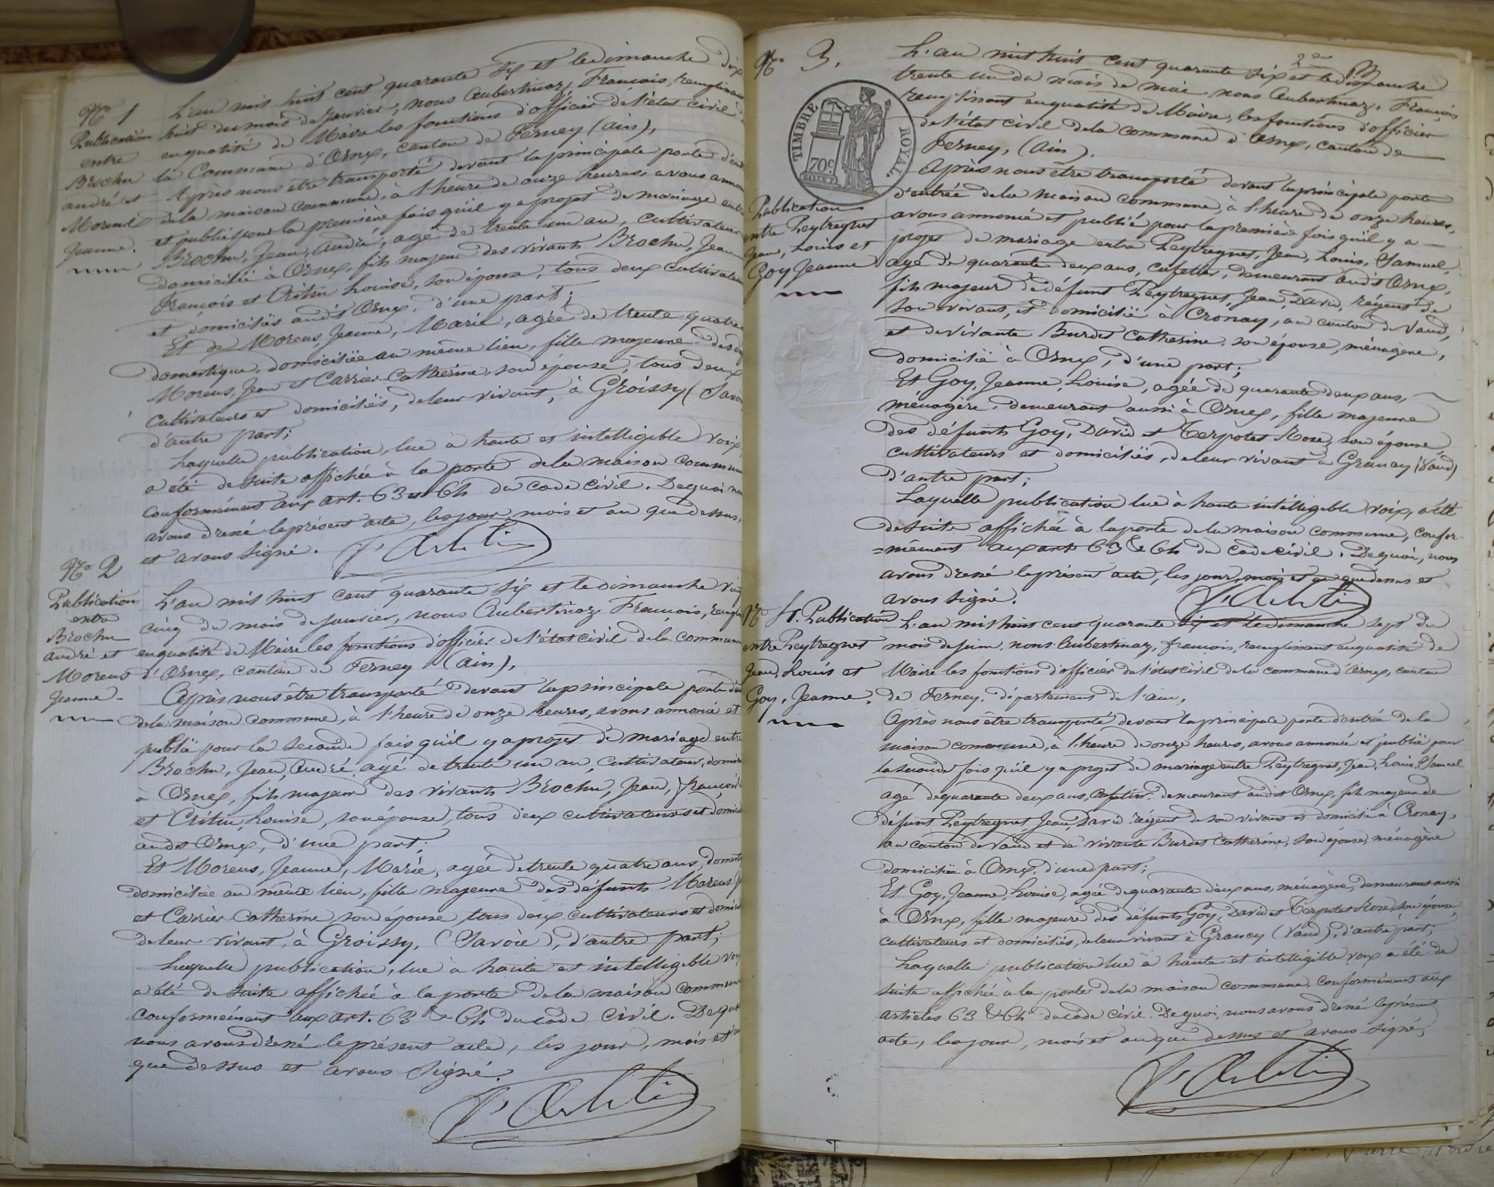 No 1
Publication
entre
Brochu
andré et
Moreus
Jeanne.
L'an mil huit cent quarante six et le dimanche dix
huit du mois de Janvier, nous Aubertinaz, François, remplissant
en qualité de Maire les fonctions d'officier de l'état civil de
la Commune d'Ornex, canton de Ferney (Ain),
Après nous être transporté devant la principale porte d'entrée
de la maison commune, à l'heure de onze heures, avons annoncé
et publié pour la première fois qu'il y a projet de mariage entre
Brochu, Jean, André, agé de trente un an, cultivateur
domicilié à Ornex, fils majeur des vivants Brochu, Jean
François et Critin Louise, son épouse, tous deux cultivateurs
et domiciliés audit Ornex, d'une part;
Et de Moreus, Jeanne, Marie, agée de trente quatre
domestique, domiciliée au même lieu, fille majeure des
Moreus, Jean et Carrier Catherine, son épouse, tous deux
cultivateurs et domiciliés, de leur vivant, à Groissy (Savoie)
d'autre part;
Laquelle publication, lue à haute et intelligible voix,
a été de suite affichée à la porte de la maison commune
conformément aux art. 63 et 64 du code civil. De quoi nous
avons dressé le présent acte, les jour, mois et an que dessus,
et avons signé.
No 2
Publication
entre
Brochu
André et
Moreus
Jeanne.
L'an mil huit cent quarante six et le dimanche vingt
cinq du mois de Janvier, nous Aubertinaz François, remplissant
en qualité de Maire les fonctions d'officier de l'état civil de la commune
d'Ornex, canton de Ferney (Ain),
Après nous être transporté devant la principale porte d'entrée
de la maison commune, à l'heure de onze heures, avons annoncé et
publié pour la seconde fois qu'il y a projet de mariage entre
Brochu, Jean, André, agé de trente un an, cultivateur, domicilié
à Ornex, fils majeur des vivants Brochu, Jean, François
et Critin, Louise, son épouse, tous deux cultivateurs et domiciliés
audit Ornex, d'une part;
Et Moreus, Jeanne, Marie, agée de trente quatre ans, domestique
domiciliée au même lieu, fille majeure des défunts Moreus
et Carrier Catherine, son épouse tous deux cultivateurs et domiciliés
de leur vivant, à Groissy, (Savoie), d'autre part;
Laquelle publication, lue à haute et intelligible voix
a été de suite affichée à la porte de la maison commune
conformément aux art. 63 et 64 du code civil. De quoi
nous avons dressé le présent acte, les jour, mois et an
que dessus et avons signé.
No 3.
TIMBRE ROYAL
70c
Publication
entre Peytregnet
Jean, Louis et
Goy Jeanne
L'an mil huit cent quarante six et le dimanche
trente un du mois de mai, nous Aubertinaz, François
remplissant en qualité de Maire, les fonctions d'officier
de l'état civil de la commune d'Ornex, canton de
Ferney, (Ain).
Après nous être transporté devant la principale porte
d'entrée de la maison commune, à l'heure de onze heures,
avons annoncé et publié pour la première fois qu'il y a
projet de mariage entre Peytregnet, Jean, Louis, Samuel,
agé de quarante deux ans, cafetier, demeurant audit Ornex,
fils majeur de défunt Peytregnet, Jean, David, régent de
son vivant, et domicilié à Cronay, au canton de Vaud,
et de vivante Burdet Catherine, son épouse, ménagère,
domiciliée à Ornex, d'une part;
Et Goy, Jeanne, Louise, agée de quarante deux ans,
ménagère, demeurant aussi à Ornex, fille majeure
des défunts Goy, David et Terpotet Rose, son épouse
cultivateurs et domiciliés, de leur vivant à Grancy (Vaud)
d'autre part;
Laquelle publication lue à haute intelligible voix, a été
de suite affichée à la porte de la maison commune, confor-
=mément aux art 63 & 64 du code civil. De quoi, nous
avons dressé le présent acte, les jour, mois et an que dessus et
avons signé.
No 4. Publication
entre Peytregnet
Jean, Louis et
Goy, Jeanne.
L'an mil huit cent quarante six et le dimanche sept du
mois de juin, nous Aubertinaz, François, remplissant en qualité de
Maire les fonctions d'officier de l'état civil de la commune d'Ornex, canton
de Ferney, département de l'ain,
Après nous être transporté devant la principale porte d'entrée de la
maison commune, à l'heure de onze heures, avons annoncé et publié pour
la seconde fois qu'il y a projet de mariage entre Peytregnet, Jean, Louis, Samuel
agé de quarante deux ans, cafetier, demeurant audit Ornex, fils majeur de
défunt Peytregnet Jean, David régent de son vivant et domicilié à Cronay,
au canton de Vaud et de vivante Burdet Catherine, son épouse, ménagère
domiciliée à Ornex, d'une part;
Et Goy, Jeanne, Louise, agée de quarante deux ans, ménagère, demeurant aussi
à Ornex, fille majeure des défunts Goy, David et Terpotet Rose, son épouse,
cultivateurs et domiciliés, de leur vivant à Grancy (Vaud), d'autre part;
Laquelle publication lue à haute et intelligible voix a été de
suite affichée à la porte de la maison commune, conformément aux
articles 63 & 64 du code civil. De quoi, nous avons dressé le présent
acte, les jour, mois et an que dessus et avons signé,